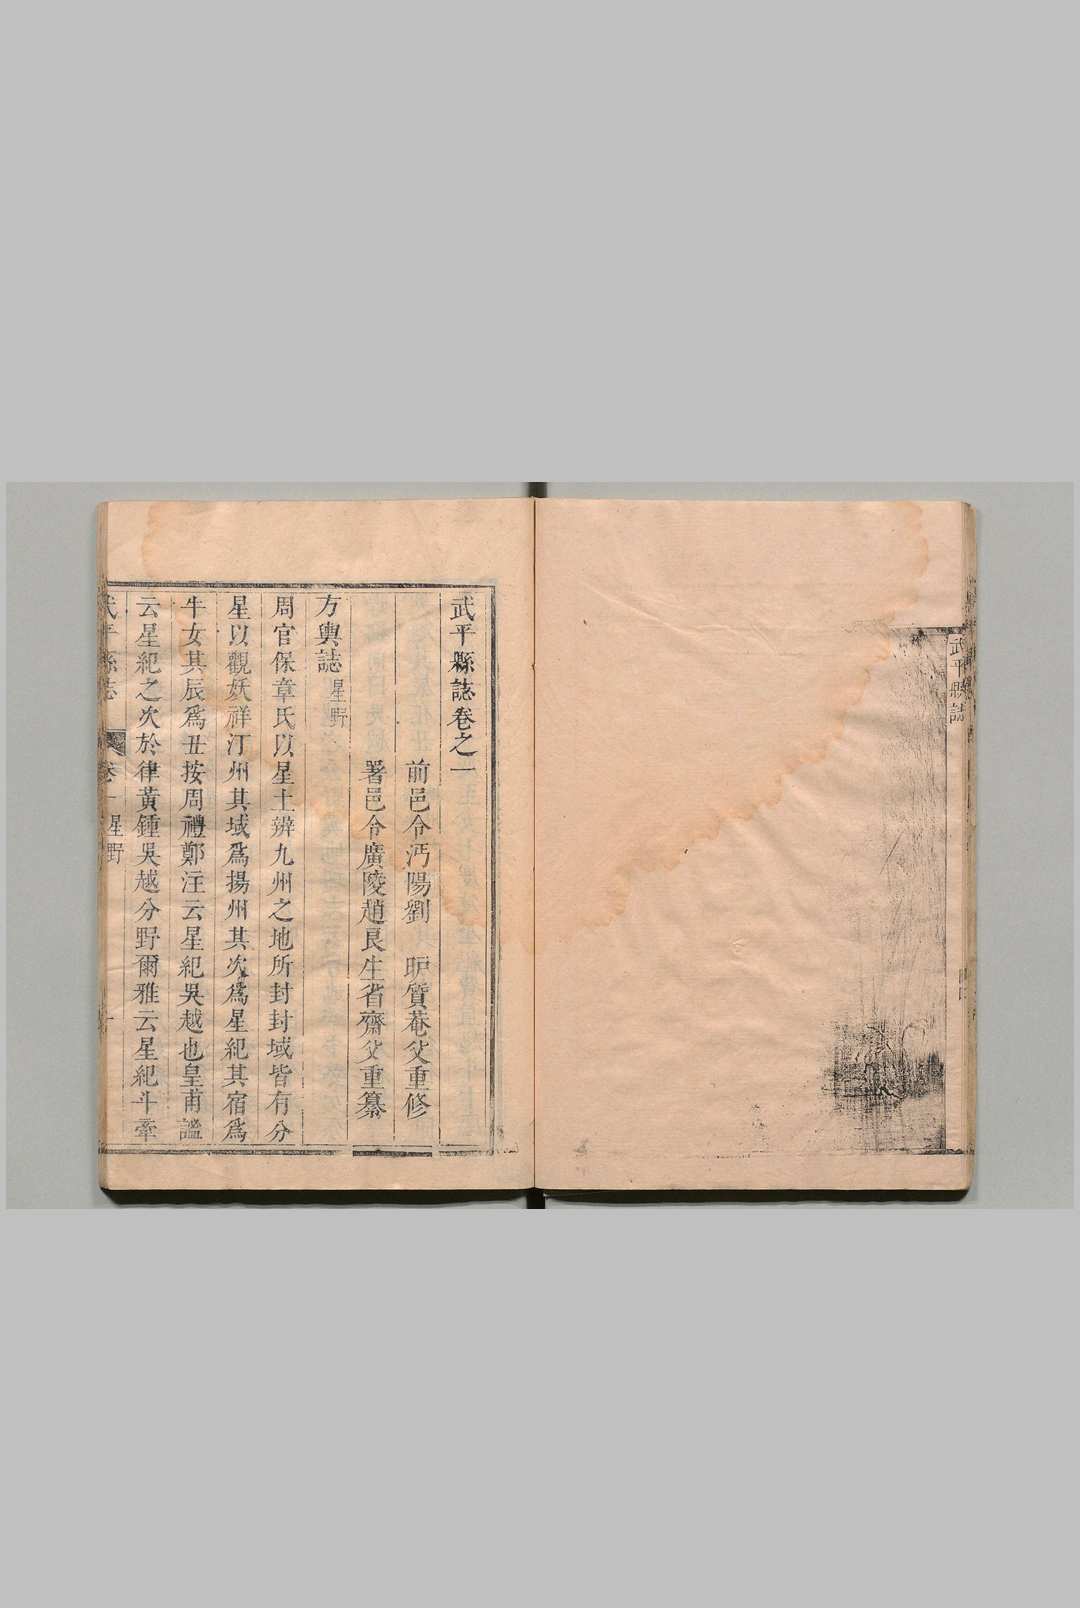 武平縣誌
武平縣誌卷之一
前邑令沔陽劉　旷質菴父重修
署邑令廣陵趙良生省齋父重纂
方輿誌星野
周官保章氏以星土辨九州之地所封封域皆有分
星以觀妖祥汀州其域爲揚州其次爲星紀其宿爲
牛女其辰爲丑按周禮鄭注云星紀吳越也皇甫謐
云星紀之次於律黃鍾吳越分野爾雅云星紀斗牽
武平縣誌　卷一　星野　一